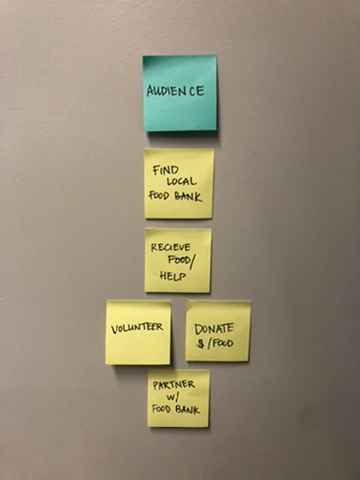 AUDIENCE
FIND
LOCAL
FOOD BANK
RECIEVE
FOOD/
HELP
VOLUNTEER
DONATE
$/FOOD
PARTNER
W/
FOOD BANK